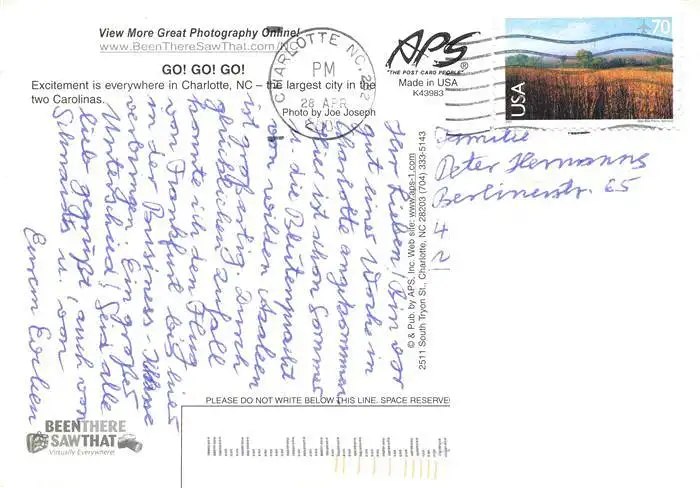 View More Great Photography Online!
www.BeenThereSawThat.com/NC
GO! GO! GO!
Excitement is everywhere in Charlotte, NC – the largest city in the
two Carolinas.
Photo by Joe Joseph
CHARLOTTE NC 282
PM
28 APR
APS
®
"THE POST CARD PEOPLE"
Made in USA
K43983
70
USA
© & Pub. by APS, Inc. Web site: www.aps-1.com
2511 South Tryon St., Charlotte, NC 28203 (704) 333-5143
Familie
Peter Hermanns
Berlinerstr. 65
4
Ihr Lieben! Bin vor
gut einer Woche in
Charlotte angekommen
Hier ist schon Sommer
die Blütenpracht
von wilden Azaleen
ist großartig. Durch
glücklichen Zufall
konnte ich den Flug
von Frankfurt bis hier
in der Bussiness-Klasse
verbringen. Ein großer
Unterschied! Seid alle
lieb gegrüßt, auch von
u. von
Eurem
PLEASE DO NOT WRITE BELOW THIS LINE. SPACE RESERVE
BEENTHERE
SAWTHAT
Virtually Everywhere!